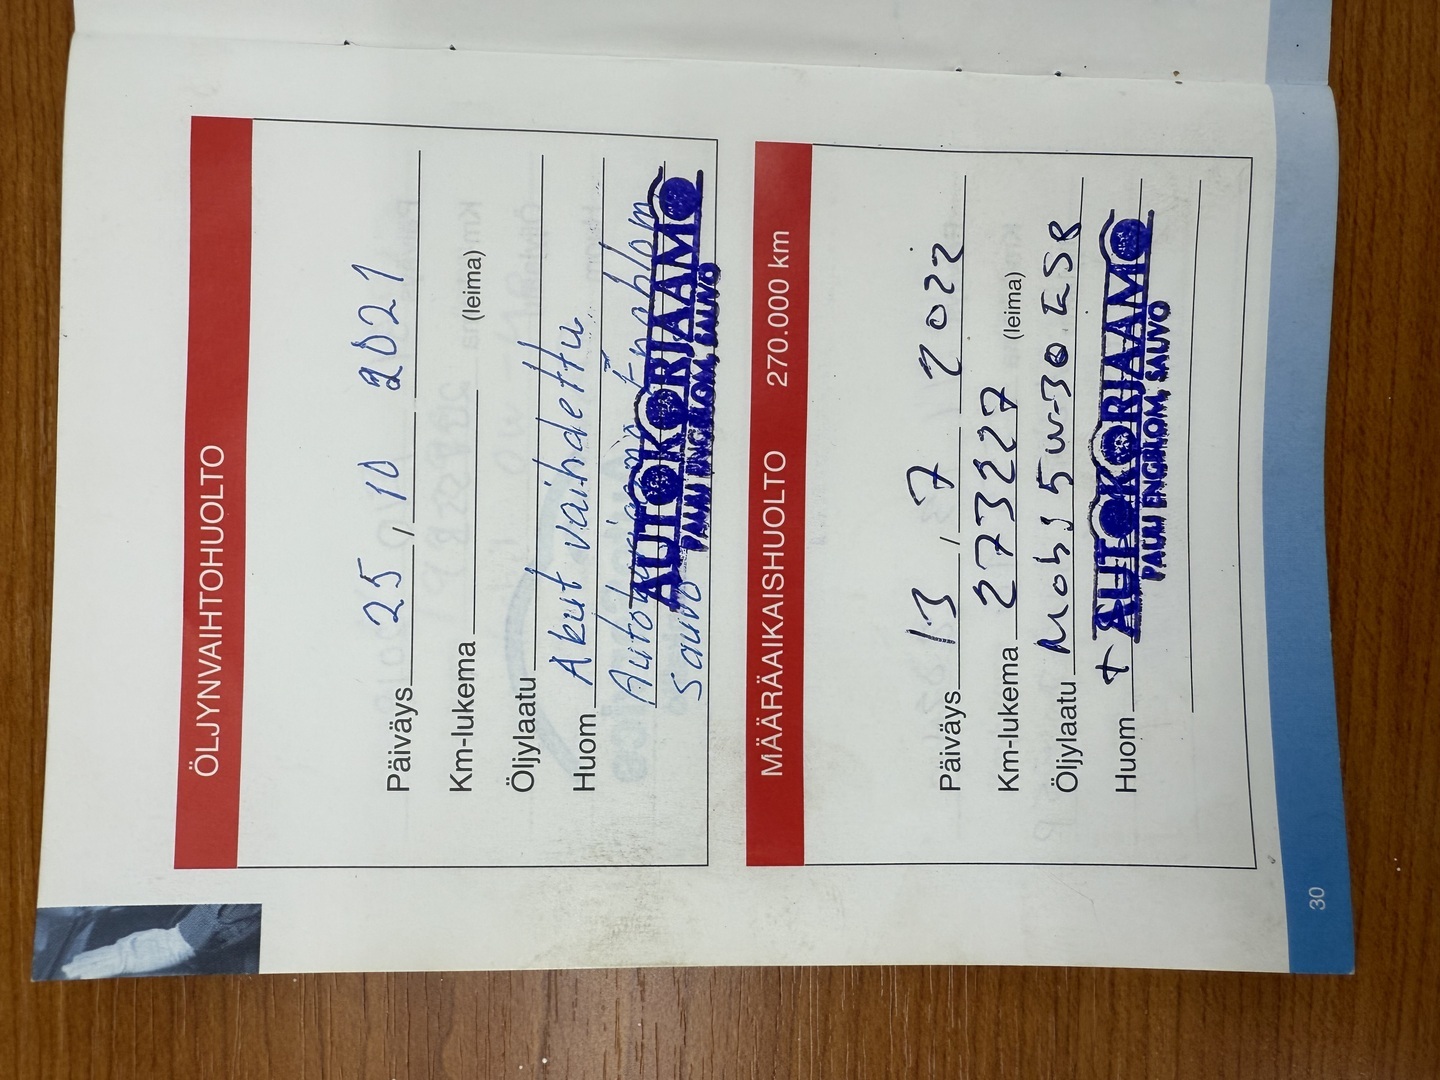 ÖLJYNVAIHTOHUOLTO
Päiväys 25, 10 2021
Km-lukema (leima)
Öljylaatu
Huom Akut vaihdettu
Engblom
Sauvo
AUTOKORJAAMO
PAULI ENGBLOM, SAUVO
MÄÄRÄAIKAISHUOLTO 270.000 km
Päiväys 13, 7 2022
Km-lukema 273227 (leima)
Öljylaatu 5W-30 ESP
Huom +
AUTOKORJAAMO
PAULI ENGBLOM, SAUVO
30